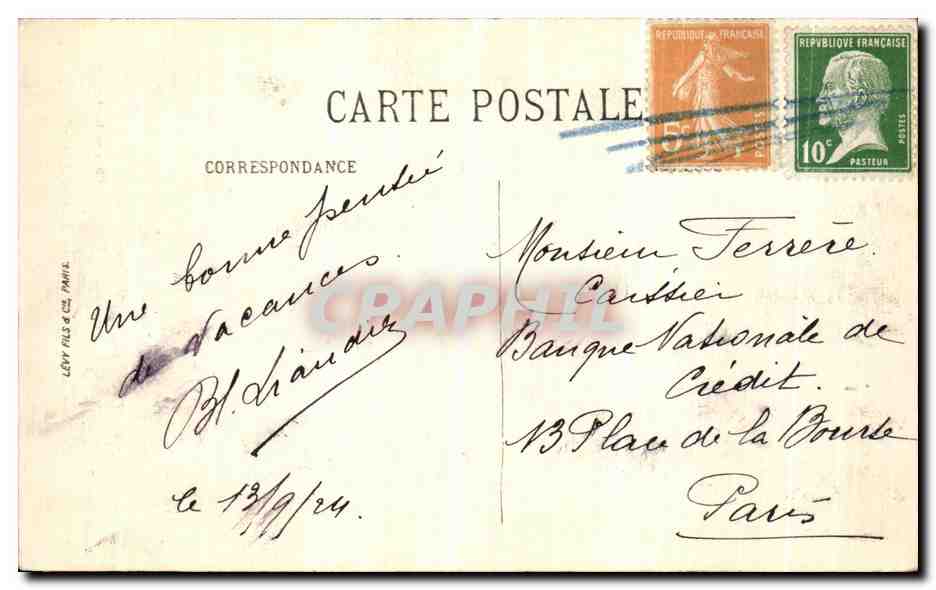 CARTE POSTALE
CORRESPONDANCE
REPUBLIQUE FRANÇAISE
5c
POSTES
REPVBLIQUE FRANÇAISE
10c
POSTES
PASTEUR
LÉVY FILS & Cie, PARIS.
Une bonne pensée
de vacances.
le 13/9/24.
Monsieur Ferrère
Caissier
Banque Nationale de
Crédit.
13 Place de la Bourse
Paris
CPAPHIL